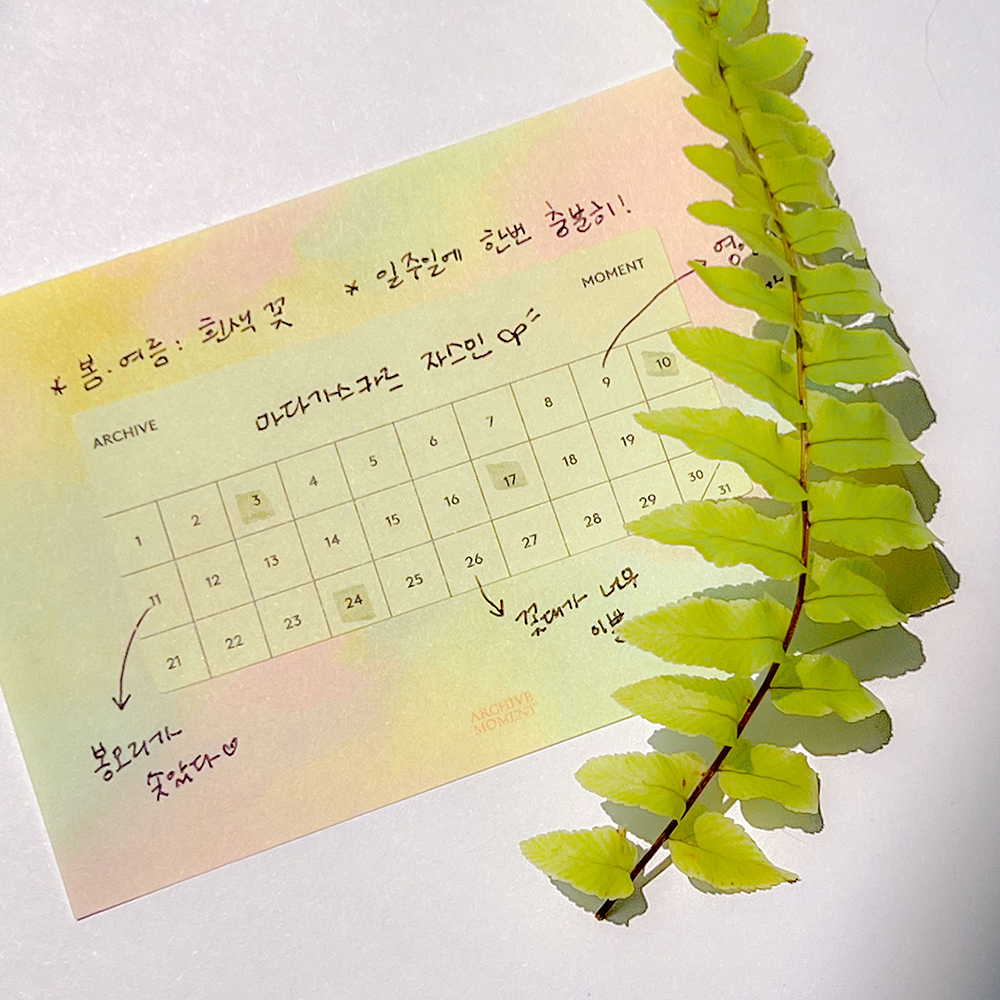 * 봄.여름: 흰색 꽃
* 일주일에 한번 충분히!
ARCHIVE
MOMENT
마다가스카르 자스민
1 2 3 4 5 6 7 8 9 10
11 12 13 14 15 16 17 18 19
21 22 23 24 25 26 27 28 29 30 31
봉오리가
솟았다♡
꽃대가 너무
이쁨
ARCHIVE
MOMENT